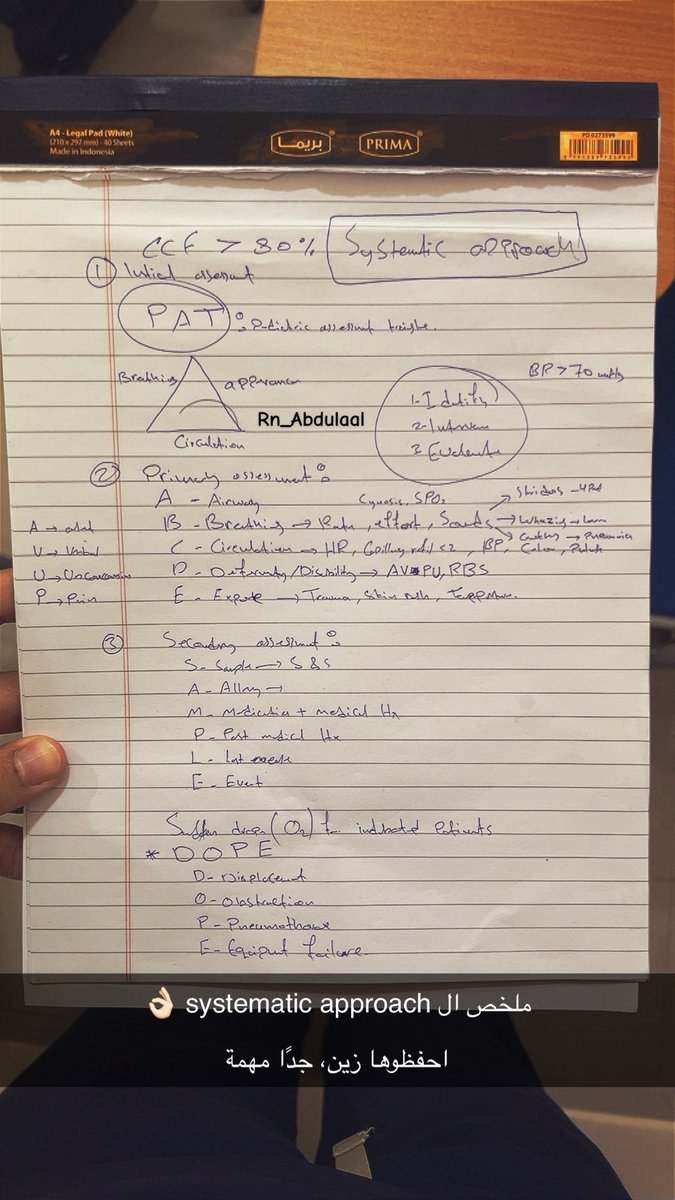 A4 - Legal Pad (White)
(210 x 297 mm) · 40 Sheets
Made in Indonesia
بريما
PRIMA
PD 0273599
CCF > 80% Systemtic approach
1 Initial assessment
PAT : Pediatric assessment triangle.
Breathing
apperance
Circulation
Rn_Abdulaal
BP > 70
1- Idntify
2- Interven
3 Evaluate
2 Primary assessment :
A - Airway
Cynosis, SPO2
Stridors
B - Breathing → Rate, effort, Sounds → Wheezing
→ Pneumonia
C - Circulation → HR, Capillary refil <2, BP, Color, Pulses
D - Deformity/Disability → AVPU, RBS
E - Expose → Trauma, Skin rash, Temperature.
A → alert
V → Verbal
U → Unconscious
P → Pain
3 Secondary assessment :
S - Sample → S & S
A - Allergy →
M - Medication + medical Hx
P - Past medical Hx
L - Last
E - Event
Sudden drop (O2) for intubated Patients
* DOPE
D - Displacement
O - Obstraction
P - Pneumothorax
E - Equipment failure.
ملخص ال systematic approach 👌🏻
احفظوها زين، جدًا مهمة